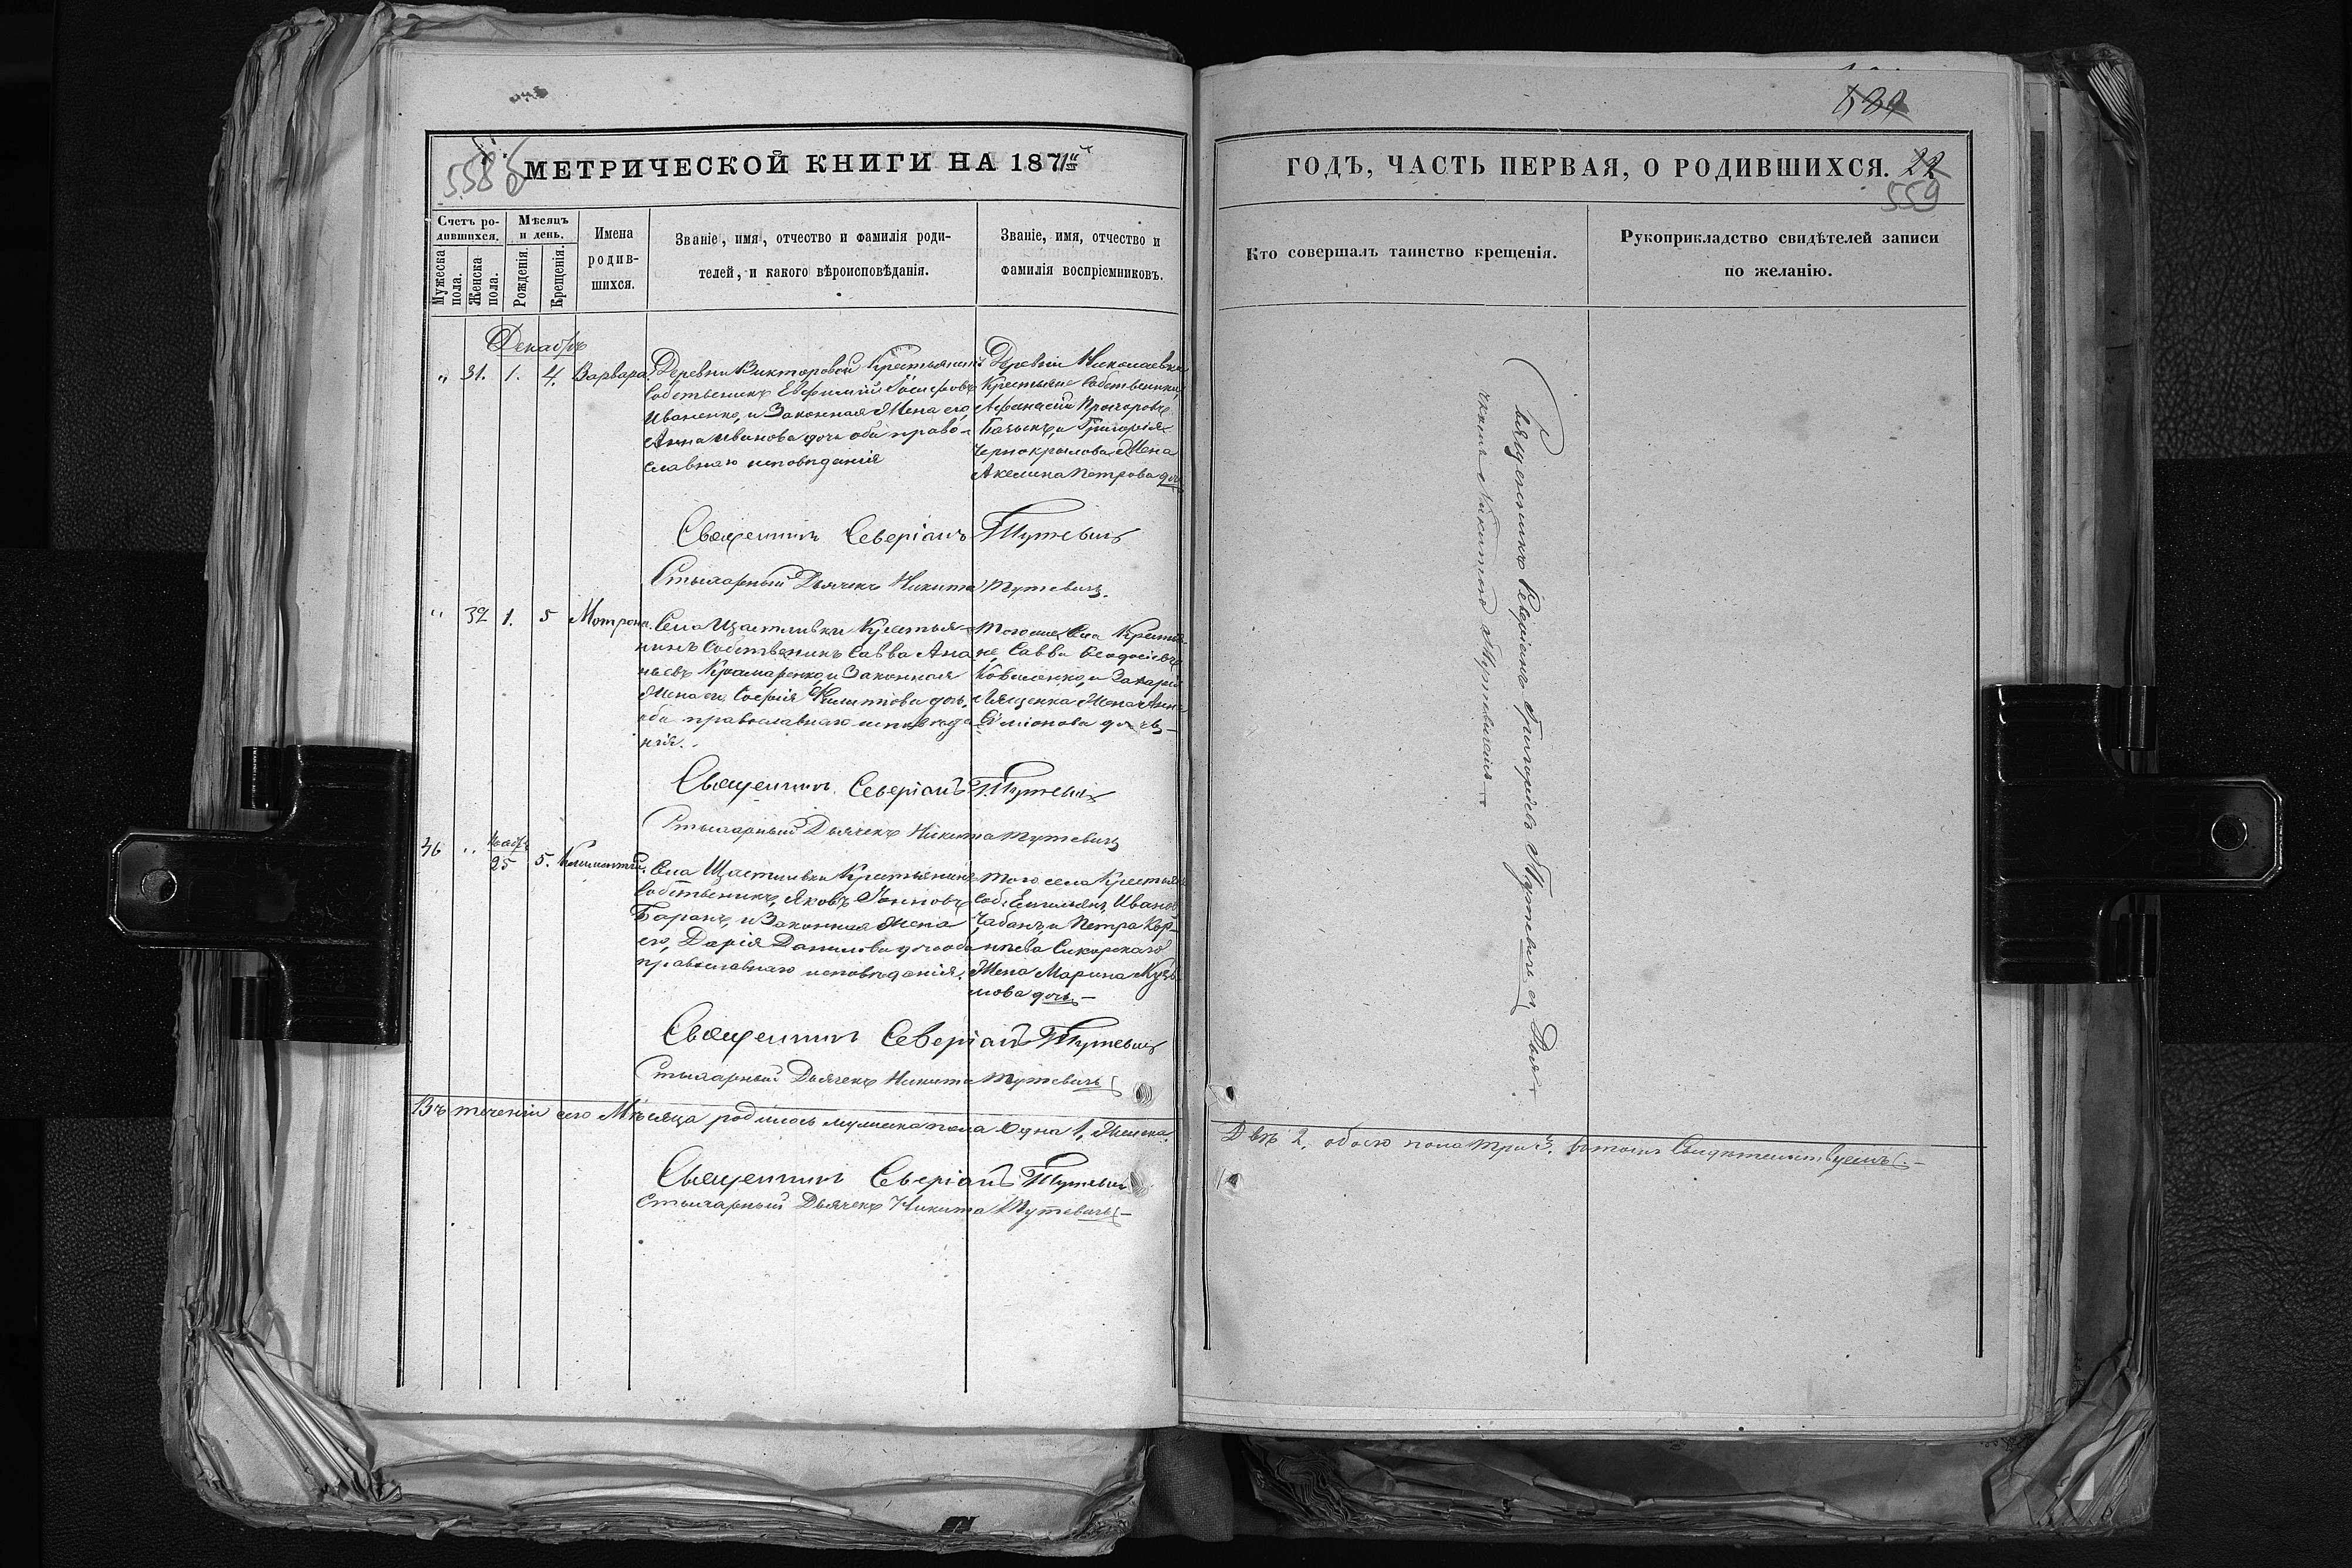 558 б
МЕТРИЧЕСКОЙ КНИГИ НА 1871й
Счетъ ро-
дившихся.
Мужеска пола.
Женска пола.
Мѣсяцъ
и день.
Рожденія.
Крещенія.
Имена
родив-
шихся.
Званіе, имя, отчество и фамилія роди-
телей, и какого вѣроисповѣданія.
Званіе, имя, отчество и
фамилія воспріемниковъ.
Декабрь
" 31. 1. 4. Варвара
Деревни Викторовой Крестьянинъ
Собственникъ Евфимій Іосифовъ
Иваненко, и Законная Жена его,
Анна Иванова дочь оба право-
славнаго исповѣданія
Деревни Николаевки
Крестьяне Собственники,
Афанасій Прохоровъ
и Григорія
Чернокрылова Жена
Акелина Петрова дочь
Священникъ Северіанъ Тутевичъ
Стихарный Дьячекъ Никита Тутевичъ.
" 32 1. 5 Мотрона
Села Щастливки Крестья-
нинъ Собственникъ Савва Ана
ньевъ Крамаренко, и Законная
Жена его Софія Филиппова дочь,
оба православнаго исповѣда
нія.
Того же Села Крестья-
не, Савва Феодосіевъ
Коваленко, и Захарія
Лященка Жена Анна
Симіонова дочь
Священникъ Северіанъ Тутевичъ
Стихарный Дьячекъ Никита Тутевичъ
36 " Ноябрь 25 5. Климентій
Села Щастливки Крестьянинъ
Собственникъ, Яковъ Іоанновъ
Баранъ, и Законная Жена
его, Дарія Данилова дочь оба
православнаго исповѣданія.
Того села Крестьяне
Соб. Емильянъ Ивановъ
Чабанъ, и Петра Кор-
нѣева Сикорскаго
Жена Марина Кузь
мова дочь
Священникъ Северіанъ Тутевичъ
Стихарный Дьячекъ Никита Тутевичъ
Въ теченіи сего Мѣсяца родилось мужеска пола Одна 1, Женска
Священникъ Северіанъ Тутевичъ
Стихарный Дьячекъ Никита Тутевичъ
ГОДЪ, ЧАСТЬ ПЕРВАЯ, О РОДИВШИХСЯ. 22
559
Кто совершалъ таинство крещенія.
Рукоприкладство свидѣтелей записи
по желанію.
Священникъ Северіанъ Григоріевъ Тутевичъ съ Дья-
чкомъ Никитою Тутевичемъ
Двѣ 2, обоего пола три 3. въ томъ Свидѣтельствуемъ.